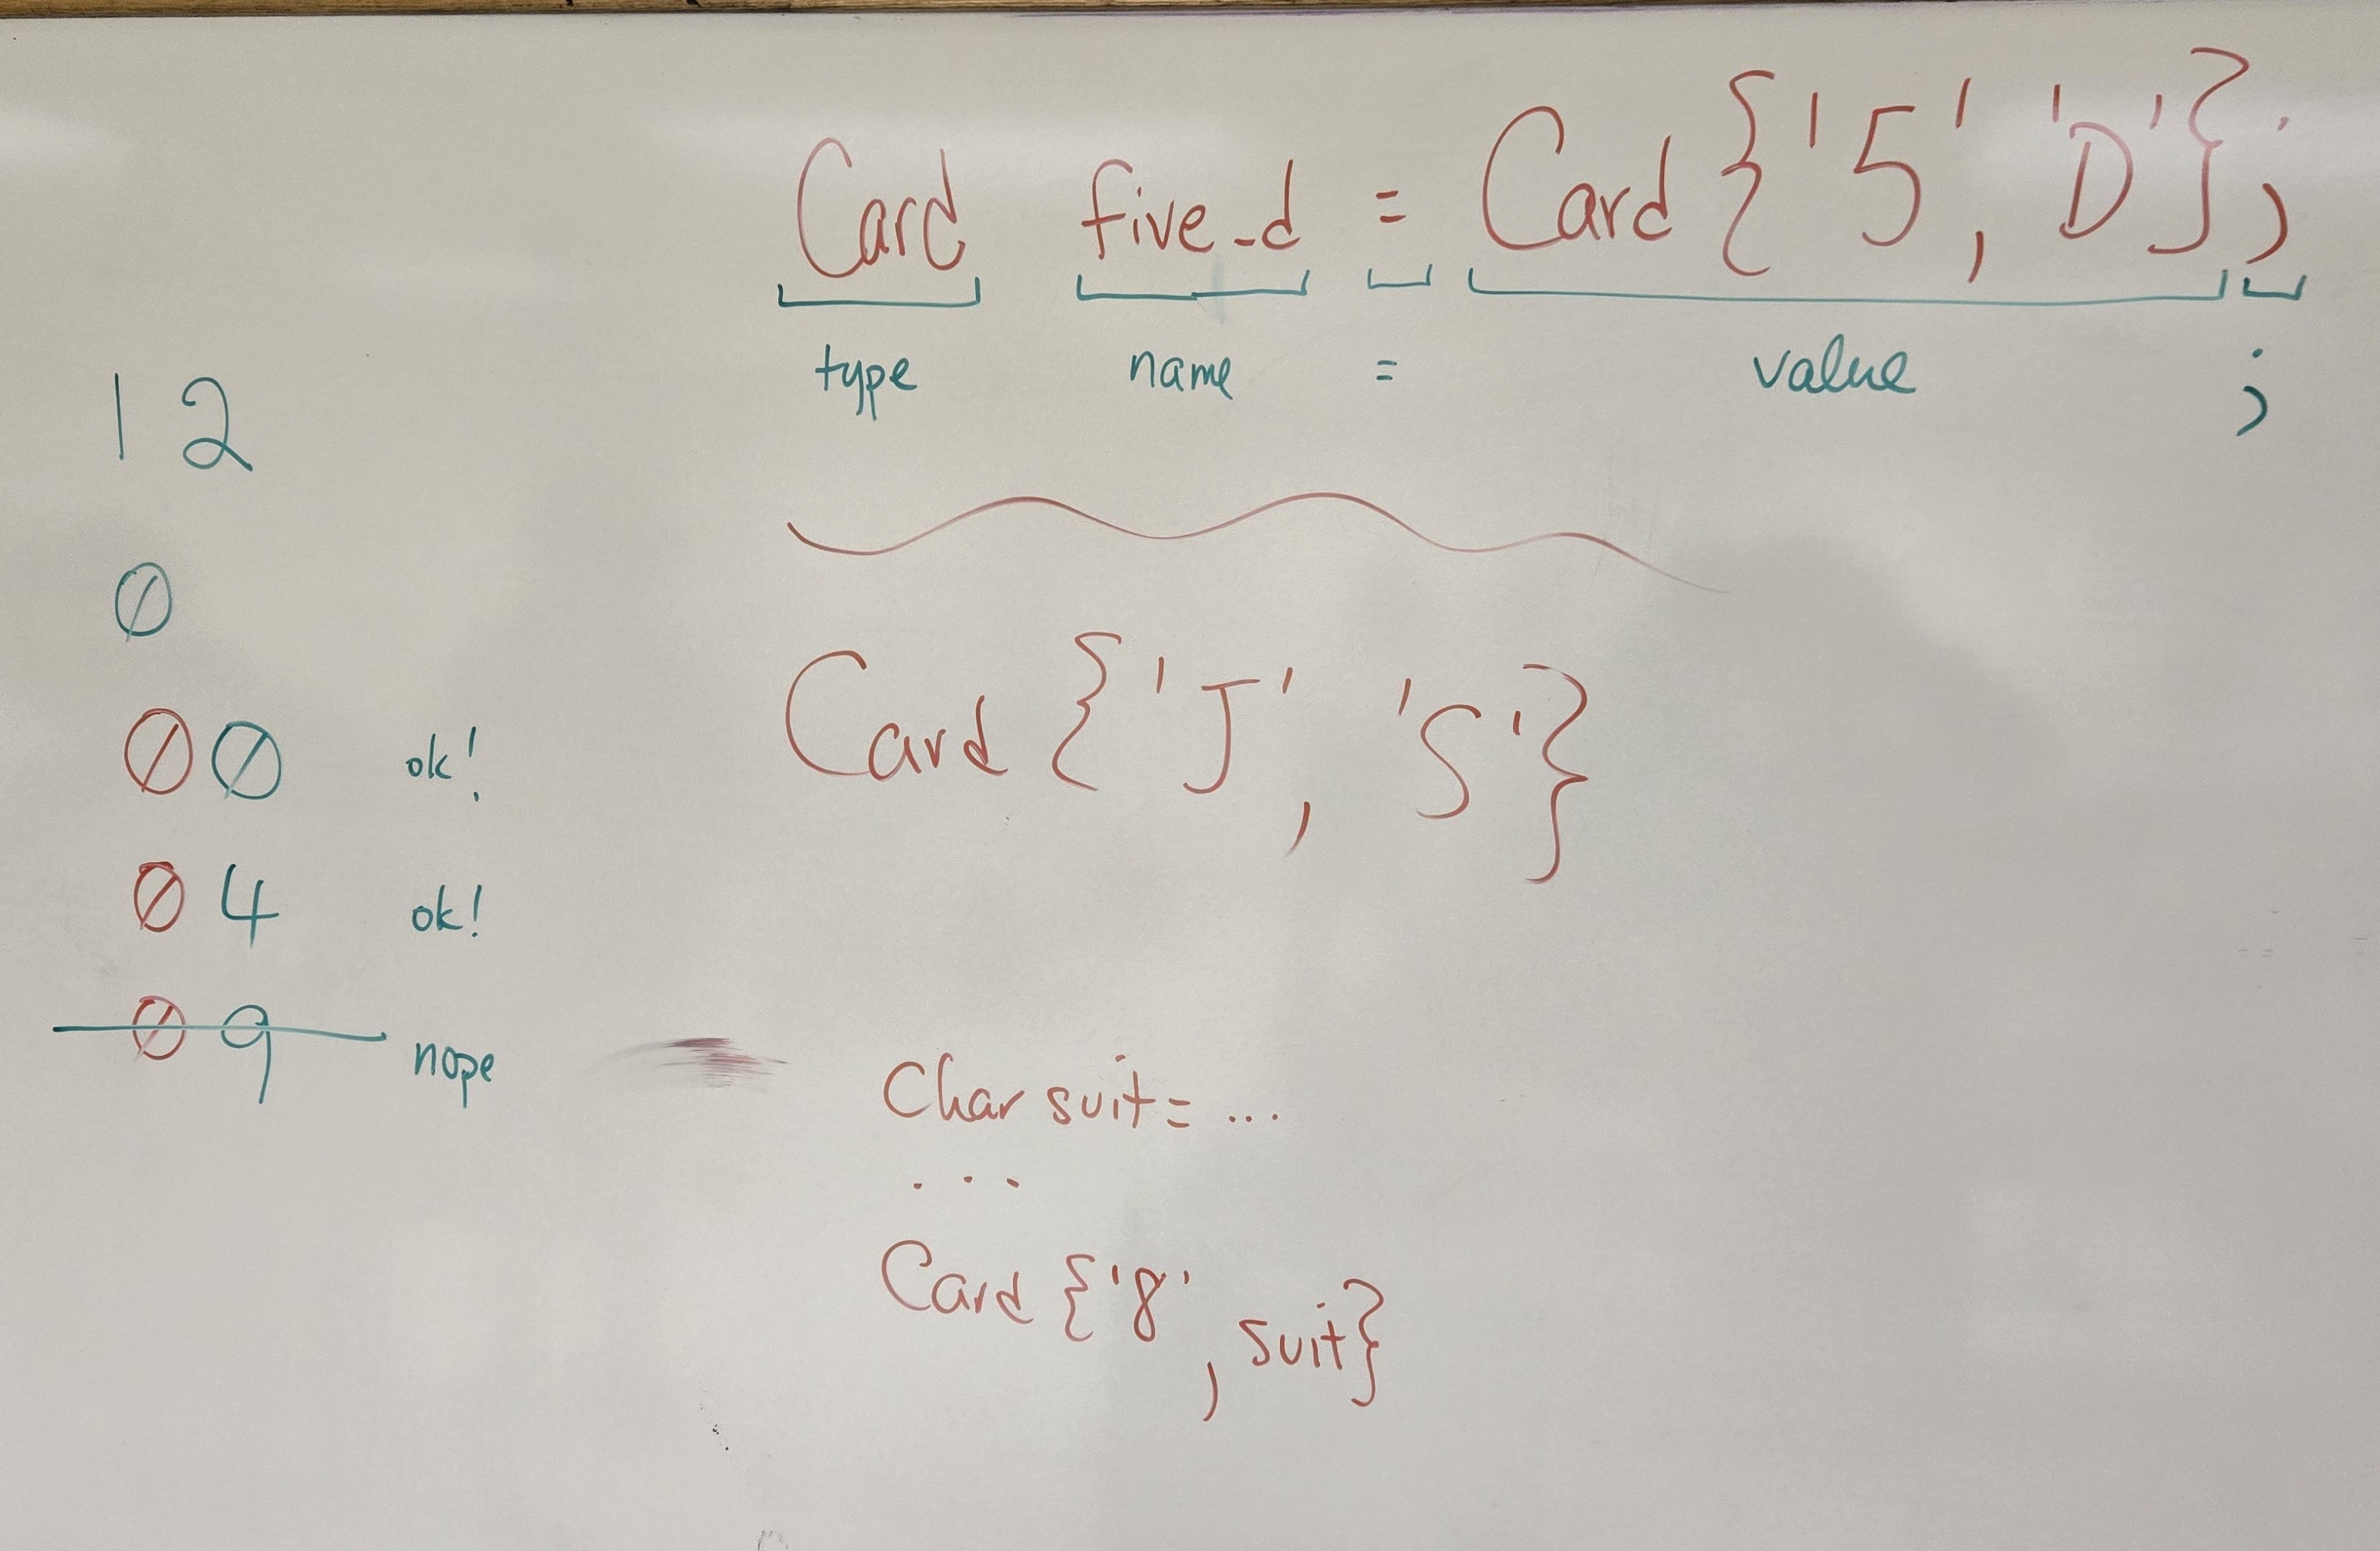 Card five_d = Card {'5', 'D'};
type name = value ;
12
0
00 ok!
04 ok!
09 nope
Card {'J', 'S'}
Char suit = ...
...
Card {'8', suit}